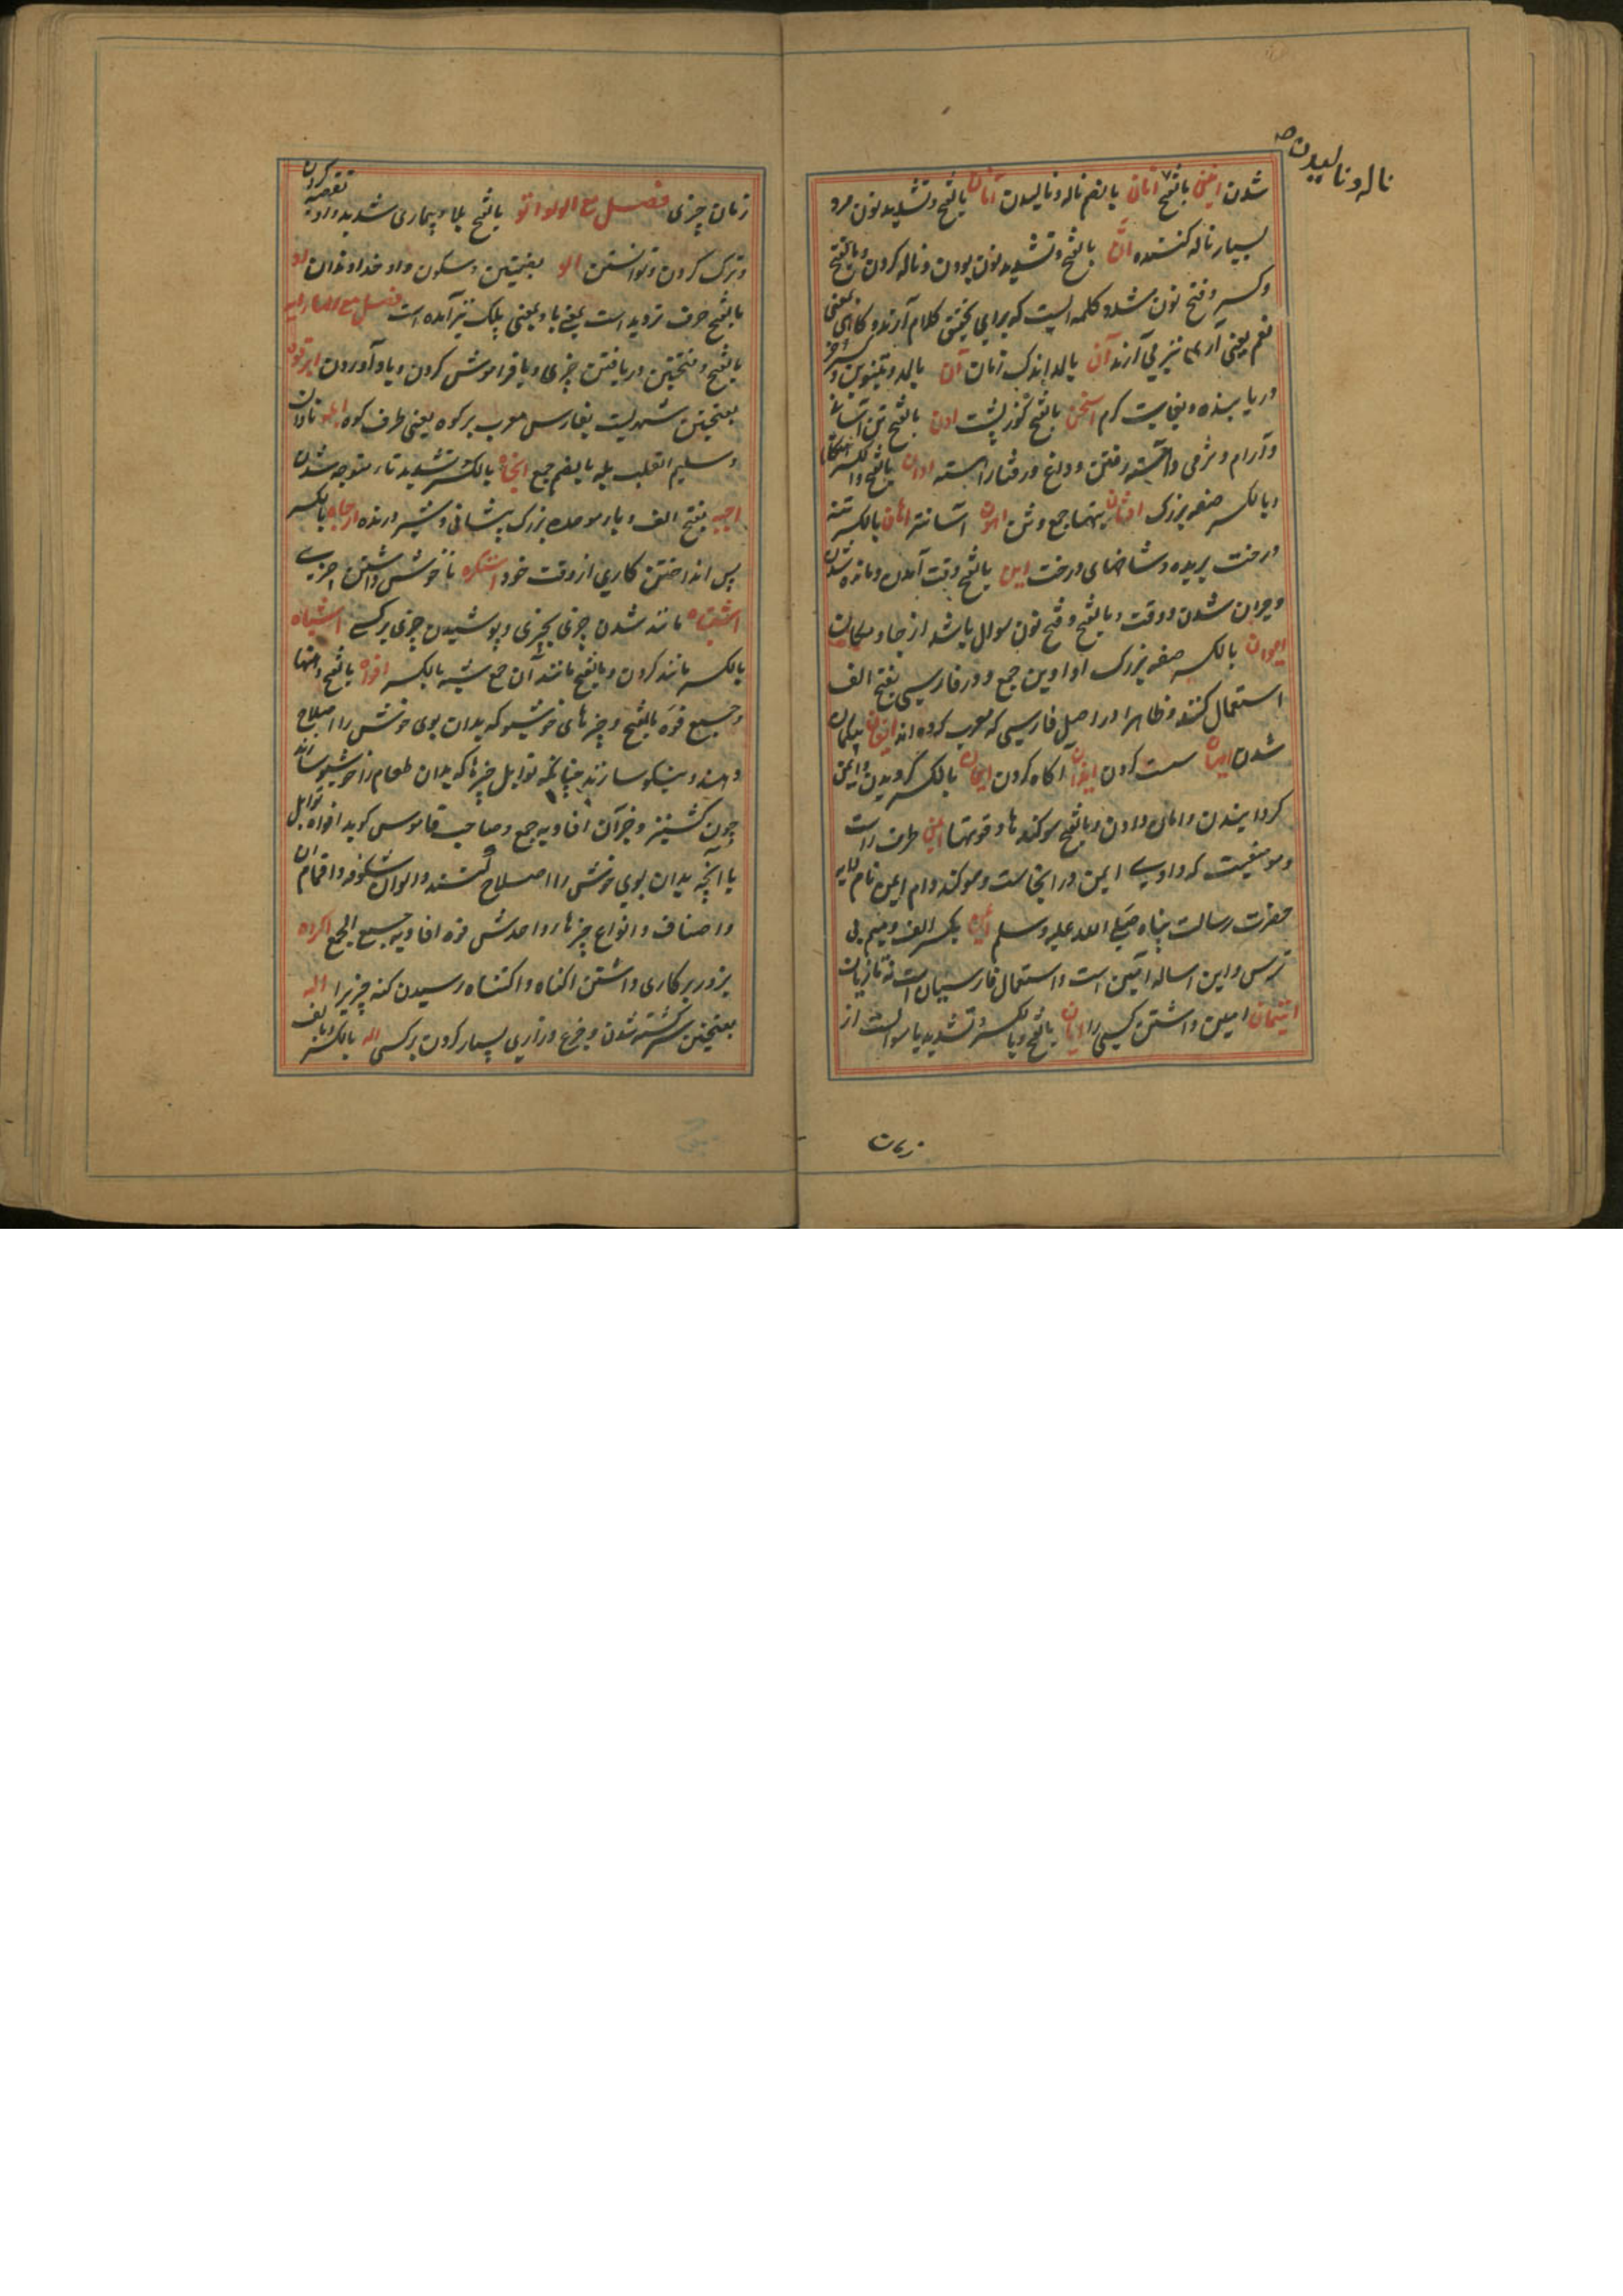 ناله و نالیدن
شدن انین بالفتح انان بالضم ناله و نالیدن انان بالفتح و تشدید نون مرد
بسیار ناله کننده ان بالفتح و تشدید نون بودن و ناله کردن و بالفتح
و کسر و فتح نون مشدد کلمه ایست که برای تحقیق کلام آرند و کاهی بمعنی
نعم یعنی آری نیز می آرند آن بالمد اندک زمان آن بالمد و تنوین
در یابنده و بغایت کرم اسخن بالفتح کوز پشت اون بالفتح تن آسانی
و آرام و نرمی و آهسته رفتن و وداع و رفتار آهسته اوان بالفتح و الکسر هنکام
و بالکسر صفه بزرک بالکسر تنه
درخت بریده و شاخهای درخت این بالفتح وقت آمدن و مانده شدن
و حیران شدن و وقت و بالفتح و فتح نون سوال باشد از جا و مکان
ایوان بالکسر صفه بزرک اواوین جمع و در فارسی بفتح الف
استعمال کنند و ظاهرا در اصل فارسی که معرب کرده اند ایقان بیکمان
شدن ایهان سست کردن ایذان آکاه کردن ایمان بالکسر کرویدن و ایمن
کردانیدن و امان دادن و بالفتح سوکندها و قوتها ایمن طرف راست
و موضعیست که وادی ایمن در انجاست و سوکند و ام ایمن نام دایه
حضرت رسالت پناه صلی الله علیه وسلم بکسر الف و میم بی
ترس و این اساله آمن است و استعمال فارسیان است نه تازیان
ایتمان امین داشتن کسی را ایان بالفتح و بالکسر و تشدید یا سوالست از
زمان
زمان چیزی فصل مع الواو اتو بالفتح بلا و بیماری شدید و تقصیر کردن
و ترک کردن و توانستن الو بضمتین و سکون واو خداوندان او
بالفتح حرف تردید است بمعنی یا و بمعنی بلک نیز آمده است فصل مع الهاء ابه
بالفتح و فتحتین دریافتن چیزی و یا فراموش کردن و یاد آوردن ابرقوه
بفتحتین شهریست بفارس معرب برکوه یعنی طرف کوه ابله نادان
و سلیم القلب بله بالضم جمع اتجاه بالکسر و تشدید تا متوجه شدن
اجبه بفتح الف و باء موحده بزرک پیشانی و شیر درنده ارجاه بالکسر
پس انداختن کاری از وقت خود استکره ناخوش داشتن چیزی
اشتباه مانند شدن چیزی بچیزی و پوشیدن چیزی بر کسی اشباه
بالکسر مانند کردن و بالفتح مانند آن جمع شبه بالکسر افواه بالفتح دهنها
و جمع فوه بالفتح و چیزهای خوشبو که بدان بوی خوش را اصلاح
دهند و نیکو سازند چنانکه توابل چیزها که بدان طعام را خوشبو سازند
چون کشنیز و جز آن افاویه جمع و صاحب قاموس کوید افواه توابل
یا انچه بدان بوی خوش را اصلاح کنند و الوان شکوفه و اقسام آن
و اصناف و انواع چیزها واحدش فوه افاویه جمع الجمع اکراه
بزور بر کاری داشتن اکناه و اکتناه رسیدن کنه چیزیرا اله
بفتحتین سرکشته شدن و جزع و زاری بسیار کردن بر کسی اله بالکسر و بالف